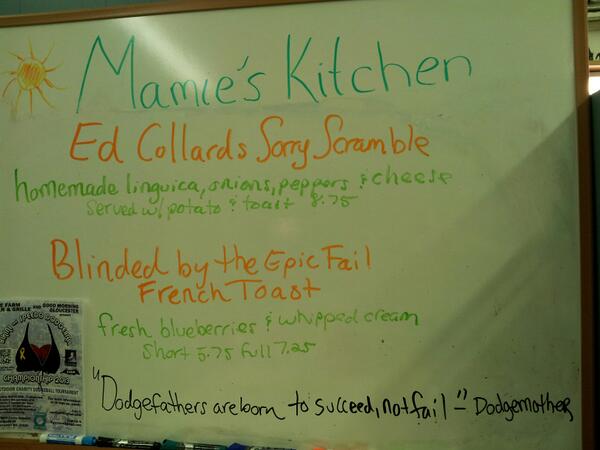 Mamie's Kitchen
Ed Collards Sorry Scramble
homemade linguica, onions, peppers & cheese
served w/ potato & toast 8.75
Blinded by the Epic Fail
French Toast
fresh blueberries & whipped cream
Short 5.75 full 7.25
"Dodgefathers are born to succeed, not fail" - Dodgemother
FARM
& GRILLE AND GOOD MORNING
GLOUCESTER
SPEEDO DODGEBALL
CHAMPIONSHIP 2013
OUTDOOR CHARITY DODGEBALL TOURNAMENT